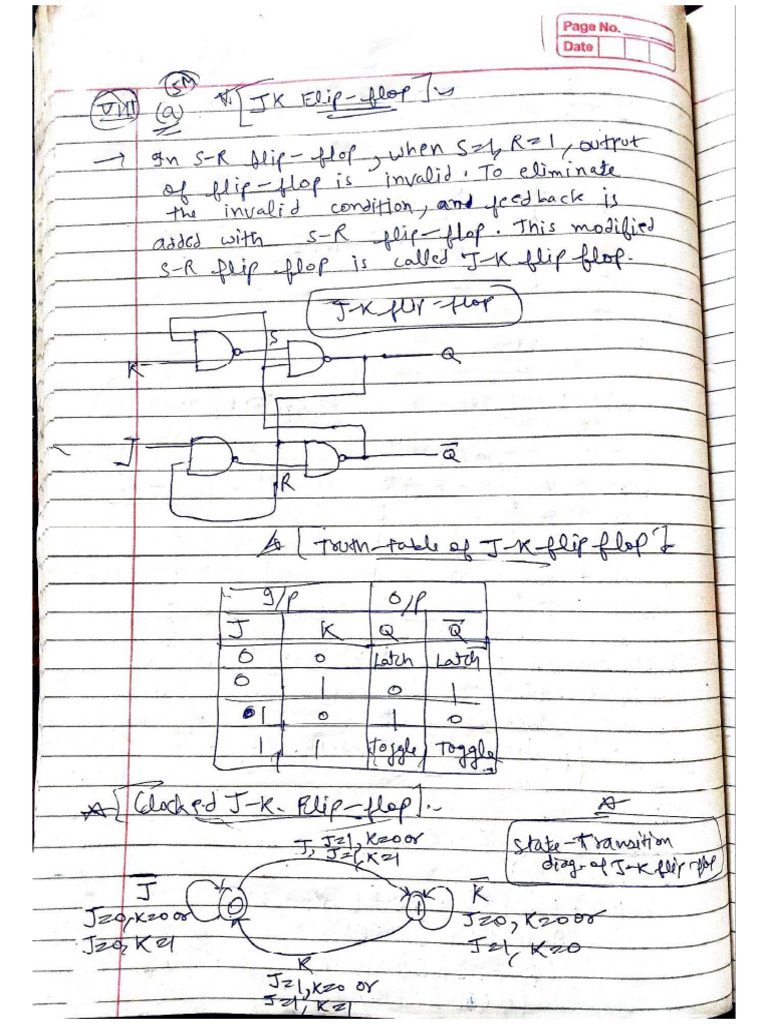 Page No.
Date
5M
VIII (a) [JK Flip-flop]
→ In S-R flip-flop, when S=1, R=1, output
of flip-flop is invalid. To eliminate
the invalid condition, and feedback is
added with S-R flip-flop. This modified
S-R flip flop is called J-K flip flop.
J-K flip-flop
S
K
Q
J
Q̅
R
[Truth-table of J-K flip flop]
I/P O/P
J K Q Q̅
0 0 Latch Latch
0 1 0 1
1 0 1 0
1 1 Toggle Toggle
[Clocked J-K. Flip-flop]
State-Transition
diag. of J-K flip flop
J, J=1, K=0 or
J=1, K=1
J̅
J=0, K=0 or
J=0, K=1
0
1
K̅
J=0, K=0 or
J=1, K=0
K
J=1, K=0 or
J=1, K=1